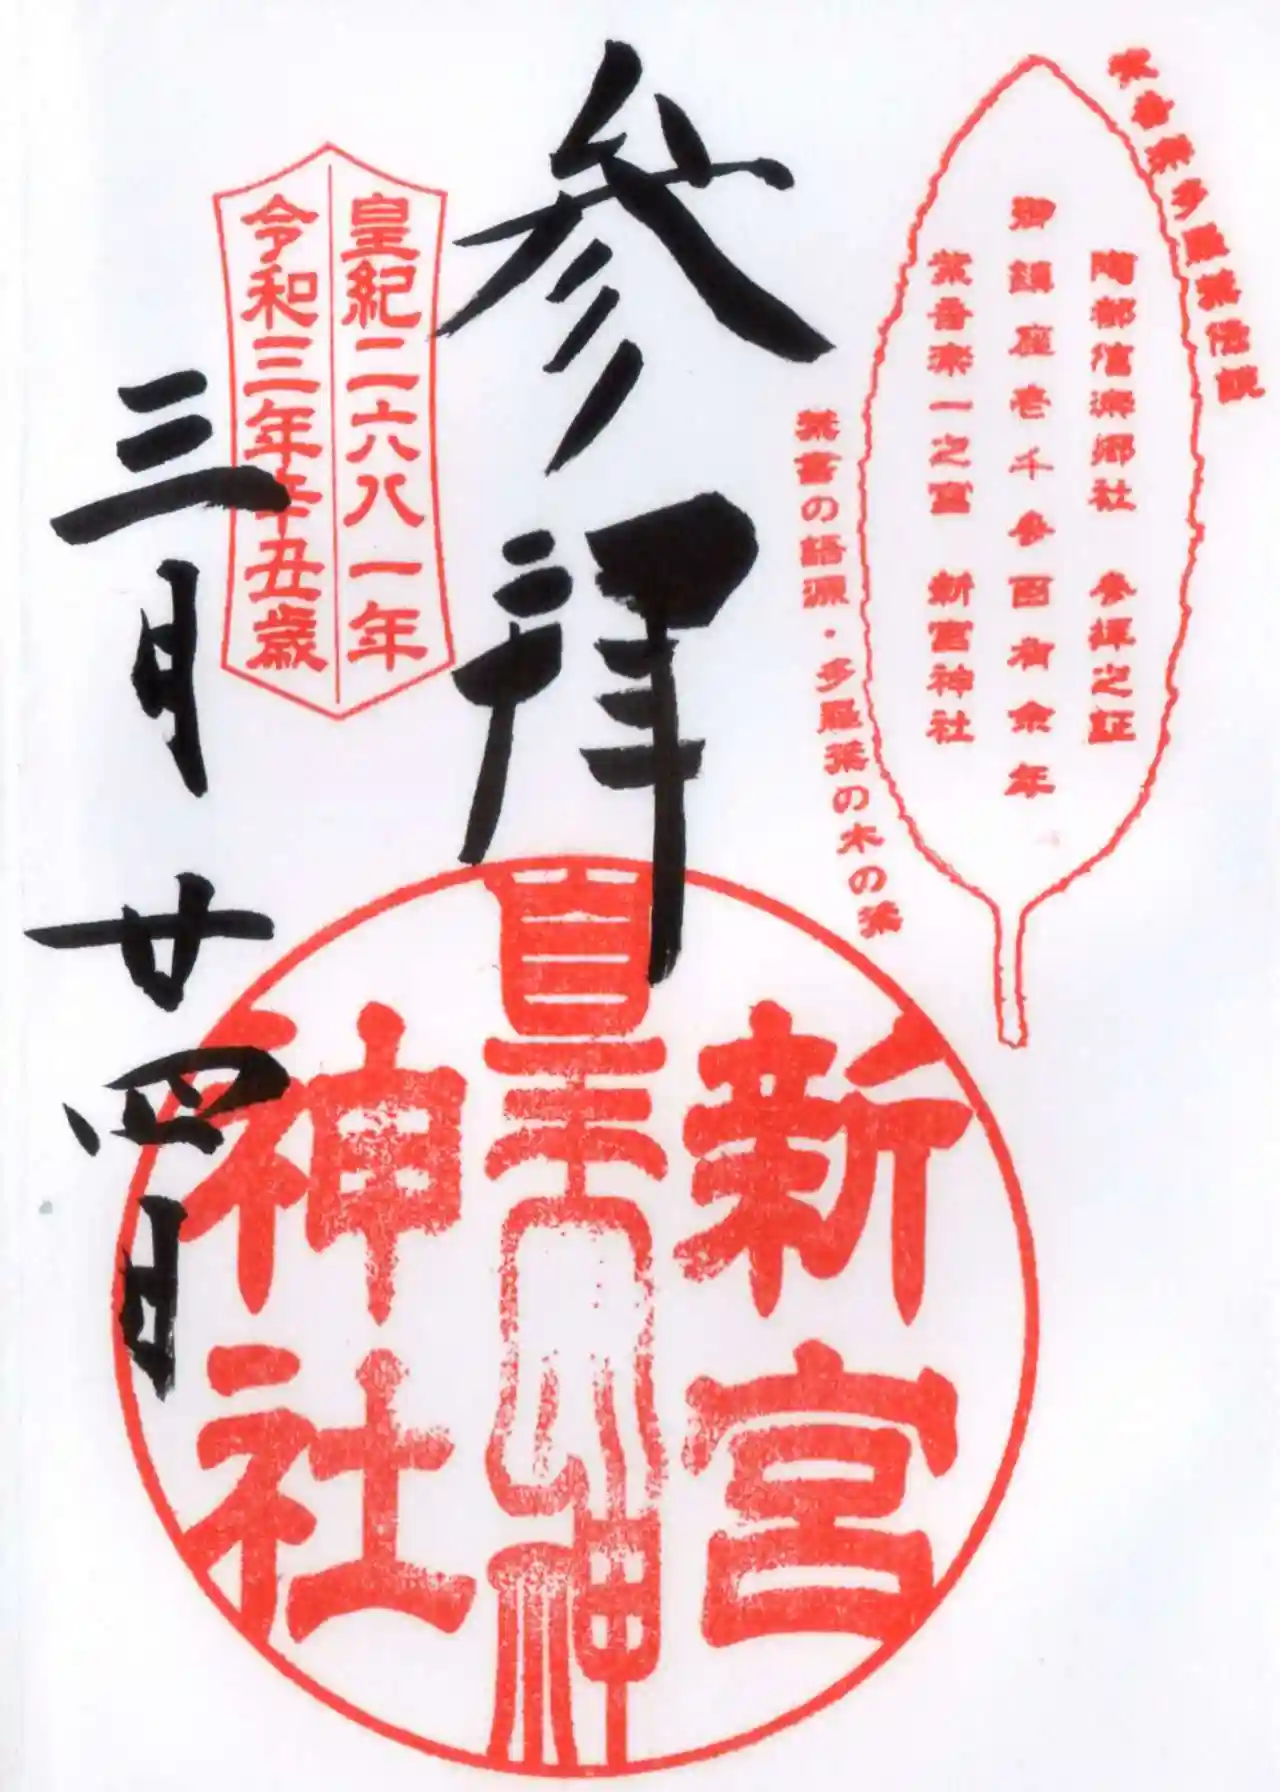 多羅葉伝説
陶都信楽郷社 参拝之証
御鎮座壱千参百有余年
紫香楽一之宮 新宮神社
葉書の語源・多羅葉の木の葉
参拝
皇紀二六八一年
令和三年辛丑歳
三月廿四日
新宮
神社